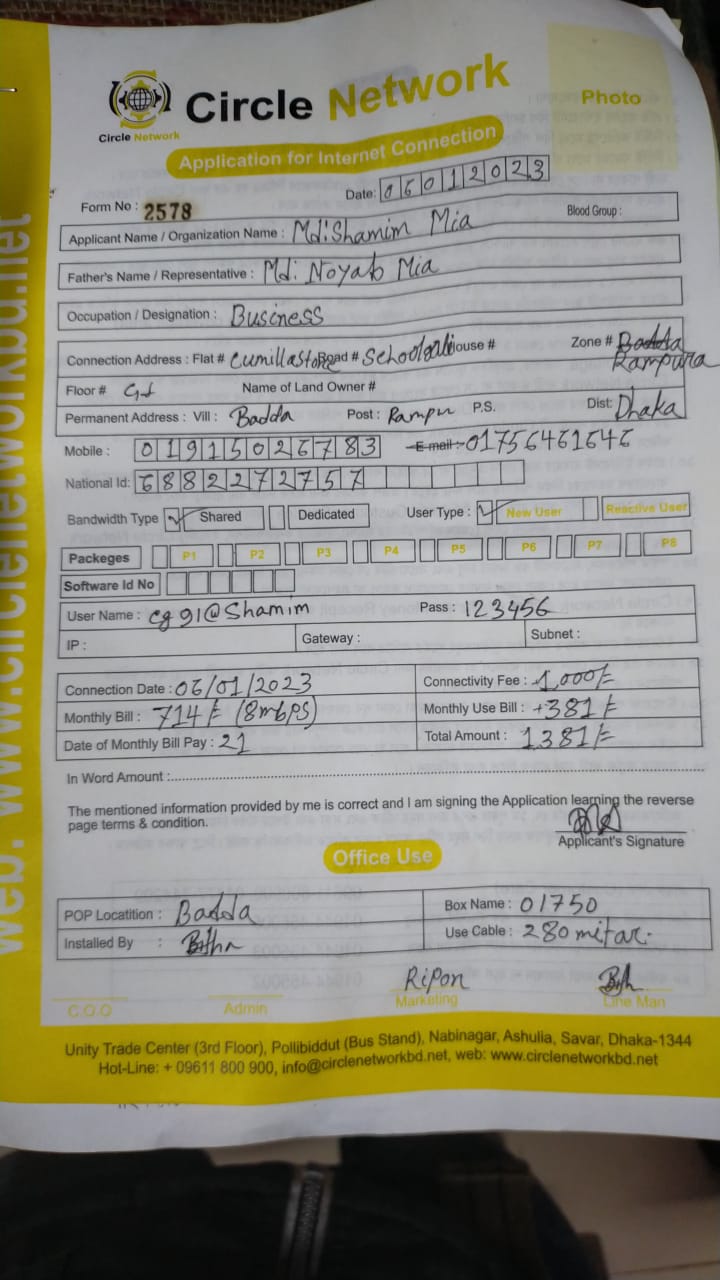 Circle Network
Circle Network
Photo
Application for Internet Connection
Form No : 2578
Date: 06012023
Applicant Name / Organization Name : Md: Shamim Mia
Blood Group :
Father's Name / Representative : Md: Noyab Mia
Occupation / Designation : Business
Connection Address : Flat # Cumilla Store Road # School gali House # Zone # Badda Rampura
Floor # Name of Land Owner #
Permanent Address : Vill : Badda Post : Rampur P.S. Dist: Dhaka
Mobile : 01915026783 E-mail :- 01756461646
National Id: 6882272757
Bandwidth Type Shared Dedicated User Type : New User Reactive User
Packeges P1 P2 P3 P4 P5 P6 P7 P8
Software Id No
User Name : cg91@Shamim Pass : 123456
IP : Gateway : Subnet :
Connection Date : 06/01/2023 Connectivity Fee : 1,000/=
Monthly Bill : 714/= (8mbps) Monthly Use Bill : +381/=
Date of Monthly Bill Pay : 21 Total Amount : 1381/=
In Word Amount :
The mentioned information provided by me is correct and I am signing the Application learning the reverse
page terms & condition.
Applicant's Signature
Office Use
POP Locatition : Badda Box Name : 01750
Installed By : Use Cable : 280 mitar.
Ripon
C.O.O Admin Marketing Line Man
Unity Trade Center (3rd Floor), Pollibiddut (Bus Stand), Nabinagar, Ashulia, Savar, Dhaka-1344
Hot-Line: + 09611 800 900, info@circlenetworkbd.net, web: www.circlenetworkbd.net
web: www.circlenetworkbd.net